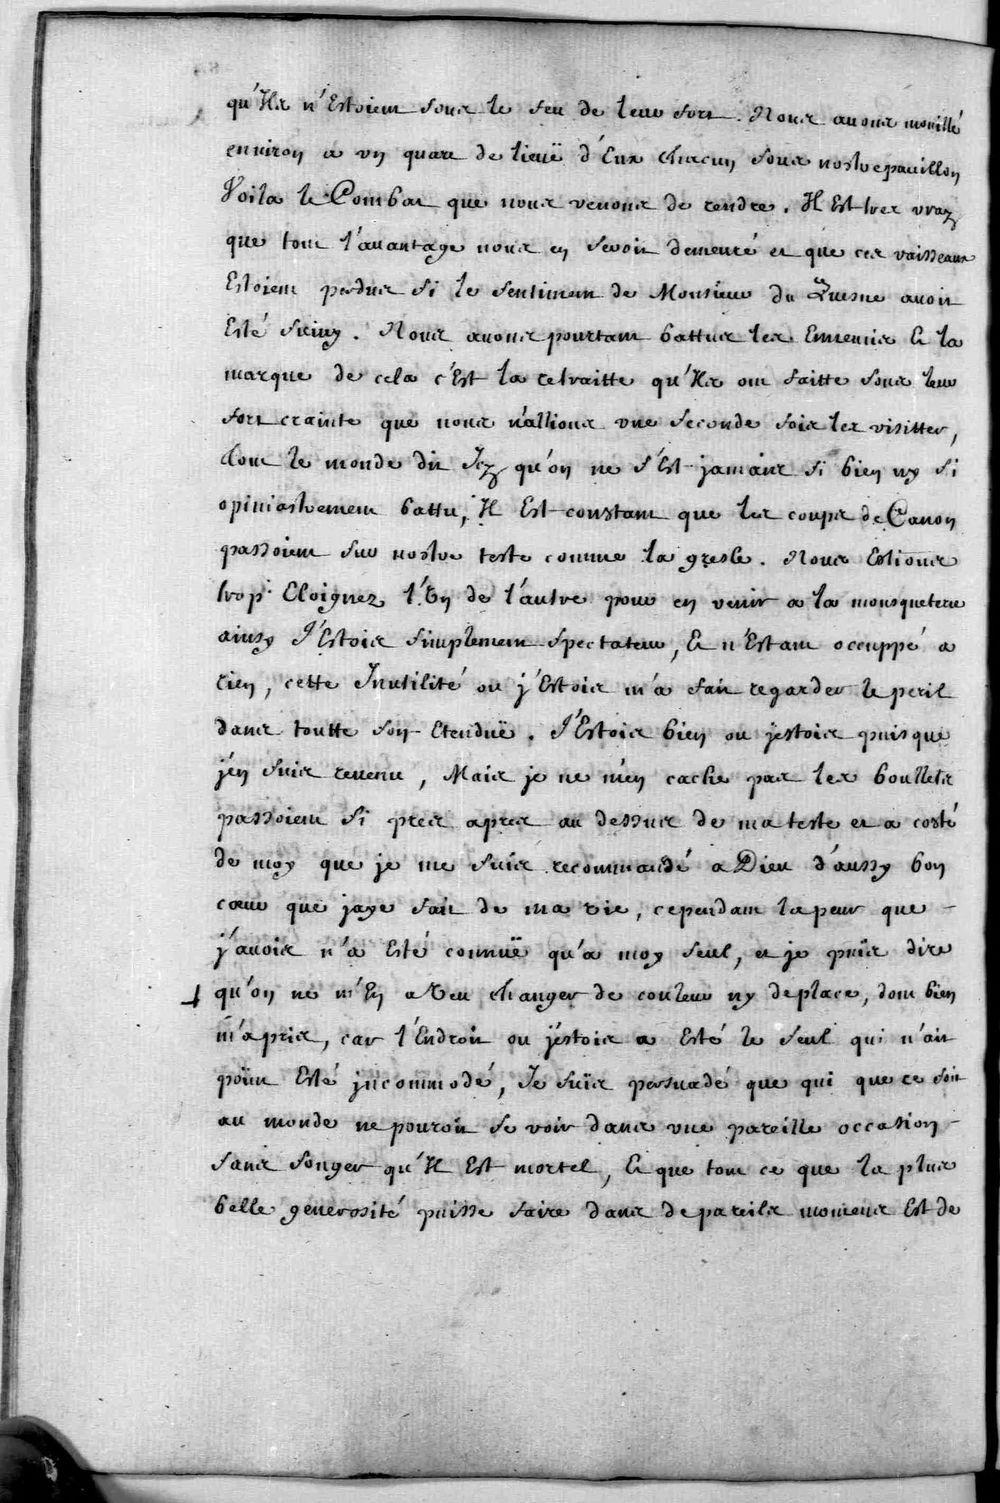 qu'Ils n'Estoient sous le feu de leur fort. Nous auons moüillé
enuiron a vn quart de lieüe d'Eux chacun sous nostre pauillon
Voila le Combat que nous venons de rendre. Il Est tres vray
que tout l'auantage nous en seroit demeuré et que ces vaisseaux
Estoient perdus si le sentiment de Monsieur du Quesne auoit
Esté suiuy. Nous auons pourtant battus les Ennemis Et la
marque de cela c'Est la retraitte qu'Ils ont faitte sous leur
fort crainte que nous n'allions vne seconde fois les visitter,
Tout le monde dit Icy qu'on ne s'Est jamais si bien ny si
opiniastrement battu, Il Est constant que les coups de Canon
passoient sur nostre teste comme la gresle. Nous Estions
trop Eloignez l'Vn de l'autre pour en venir a la mousqueterie
ainsy J'Estois simplement spectateur, Et n'Estant occuppé a
rien, cette Inutilité ou j'Estois m'a fait regarder le peril
dans toutte son Etenduë. J'Estois bien ou jestois puis que
j'en suis reuenu, Mais je ne m'en cache pas les boullets
passoient si pres apres au dessus de ma teste et a costé
de moy que je me suis recommandé a Dieu d'aussy bon
cœur que jaye fait de ma vie, cependant la peur que
j'auois n'a Esté connuë qu'a moy seul, et je puis dire
qu'on ne m'En a veu changer de couleur ny de place, dont bien
m'a pris, car l'Endroit ou j'estois a Esté le seul qui n'ait
point Esté jncommodé, Je suis persuadé que qui que ce soit
au monde ne pouroit se voir dans vne pareille occasion
sans songer qu'Il Est mortel, Et que tout ce que la plus
belle generosité puisse faire dans de pareils moments Est de